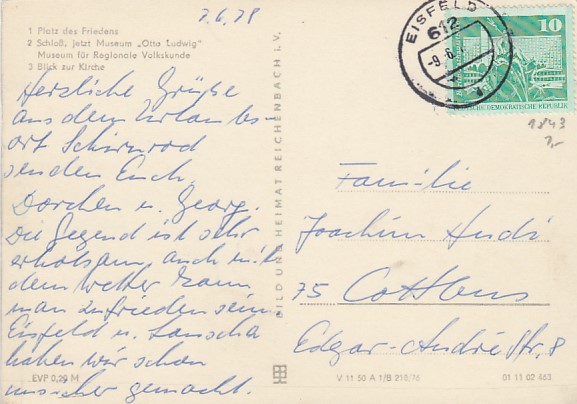 7.6.78
1 Platz des Friedens
2 Schloß, jetzt Museum „Otto Ludwig"
Museum für Regionale Volkskunde
3 Blick zur Kirche
Herzliche Grüße
aus dem Urlaubs-
ort Schirnrod
senden Euch
Dorchen u. Georg.
Die Gegend ist sehr
erholsam, auch mit
dem Wetter kann
man zufrieden sein.
Eisfeld u. Lauscha
haben wir schon
unsicher gemacht.
EVP 0,20 M
BILD UND HEIMAT REICHENBACH I. V.
EISFELD
612
-9.6.
10
DEUTSCHE DEMOKRATISCHE REPUBLIK
1843
Familie
Joachim
75 Cottbus
Edgar-André Str. 8
V 11 50 A 1/B 218/76
01 11 02 463